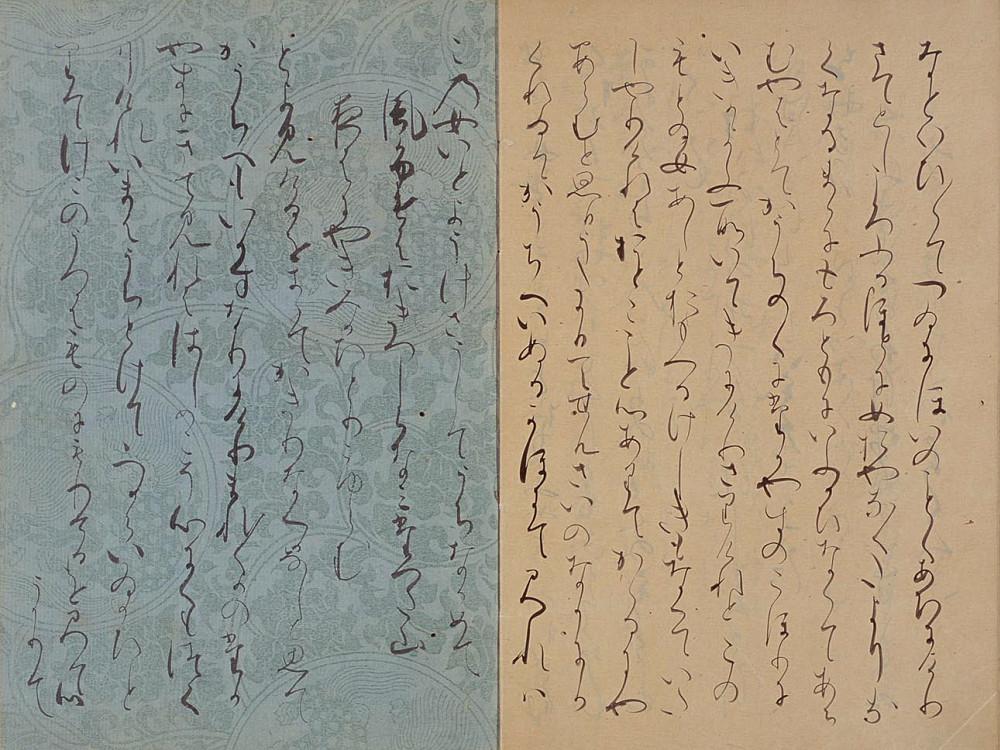 なといひ/\てつゐにほいのことくあひにけり
さてとしころふるほとに女おやなくたよりな
くなるまゝにもろともにいふかひなくてあら
むやはとてかうちのくにたかやすのこほりに
いきかよふ所いてきにけりさりけれとこの
もとの女あしとおもへるけしきもなくていた
しやりけれはおとここと心ありてかゝるにや
あらむと思ひうたかひてせんさいのなかにか
くれゐてかうちへいぬるかほにて見れは
この女いとようけさうしてうちなかめて
風ふけはおきつしらなみたつた山
夜はにやきみかひとりこゆらむ
とよみけるをきゝてかきりなくかなしと思て
かうちへもいかすなりにけりまれ/\かのたか
やすにきて見れははしめこそ心にくゝもつく
りけれいまはうちとけてゝつからいゐかひと
りてけこのうつはものにもりけるを見て心
うかりて